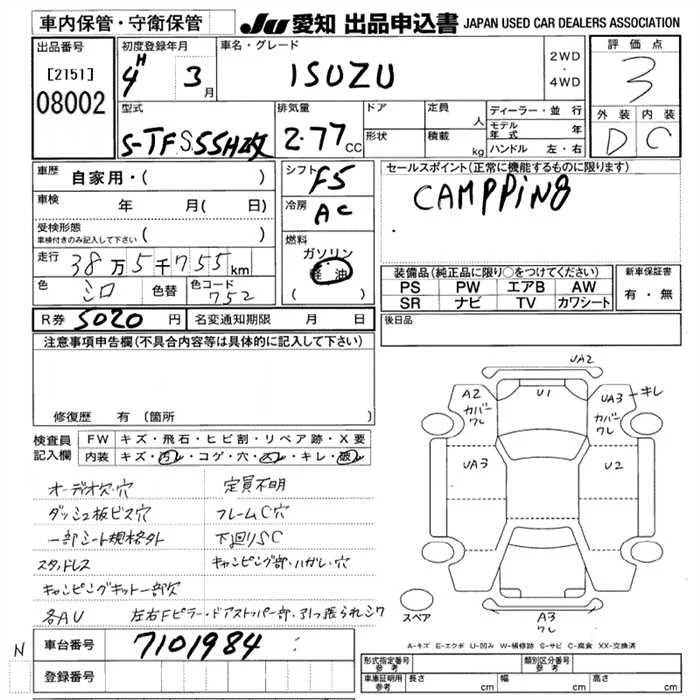 車内保管・守衛保管
JU 愛知 出品申込書 JAPAN USED CAR DEALERS ASSOCIATION
出品番号
[2151]
08002
初度登録年月
4H 3月
車名・グレード
ISUZU
2WD
・
4WD
評価点
3
外装 内装
D C
型式
S-TFS55H改
排気量
2.77CC
ドア
形状
定員 人
積載 kg
ディーラー・並行
モデル年式 年
ハンドル 左・右
車歴 自家用・( )
車検 年 月( 日)
受検形態
車検付きのみ記入して下さい ( )
走行 38万5千755km
色 シロ 色替 色コード 752
シフト F5
冷房 AC
燃料
ガソリン
軽油
( )
セールスポイント(正常に機能するものに限ります)
CAMPPiNG
装備品(純正品に限り○をつけてください)
PS PW エアB AW
SR ナビ TV カワシート
新車保証書
有・無
R券 5020円 名変通知期限 月 日
後日品
注意事項申告欄(不具合内容等は具体的に記入して下さい)
修復歴 有(箇所
検査員記入欄
FW キズ・飛石・ヒビ割・リペア跡・X要
内装 キズ・汚レ・コゲ・穴・スレ・キレ・破レ
オーデオ欠・穴 定員不明
ダッシュ板ビス穴 フレームC穴
一部シート規格外 下回りSC
スタッドレス キャンピング部・ハガレ・穴
キャンピングキット一部欠
各AU 左右Fピラー・ドアストッパー部・引っ張られシワ
UA2
A2
カバー
ワレ
U1
UA3 キレ
カバー
ワレ
UA3
U2
スペア
A3
ワレ
N
車台番号 7101984
登録番号
A-キズ E-エクボ U-凹み W-補修跡 S-サビ C-腐食 XX-交換済
形式指定番号 参考
類別区分番号 参考
車庫証明用 参考 長さ cm 幅 cm 高さ cm